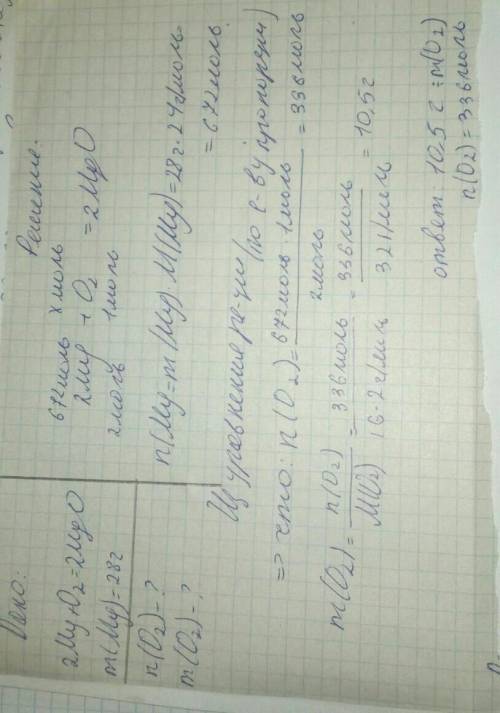 Дано:
2Mg+O2=2MgO
m(Mg)=28г
n(O2)-?
m(O2)-?
Решение:
672моль x моль
2Mg + O2 = 2MgO
2моль 1моль
n(Mg=m(Mg)·M(Mg)=28г·24г/моль=
=672моль.
Из уравнения р-ции (по с-ву пропорции)
=> что: n(O2)= 672моль·1моль / 2моль =336моль
m(O2)= n(O2) / M(O2) = 336моль / 16·2г/моль = 336моль / 32г/моль =10,5г
ответ: 10,5г =m(O2)
n(O2)=336моль